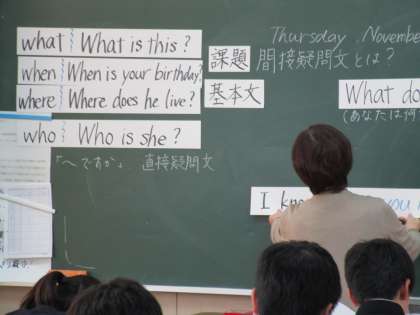 Thursday November
what What is this?
課題 間接疑問文とは?
when When is your birthday?
where Where does he live?
基本文
What do
(あなたは何
who Who is she?
「〜ですか」 直接疑問文
I you